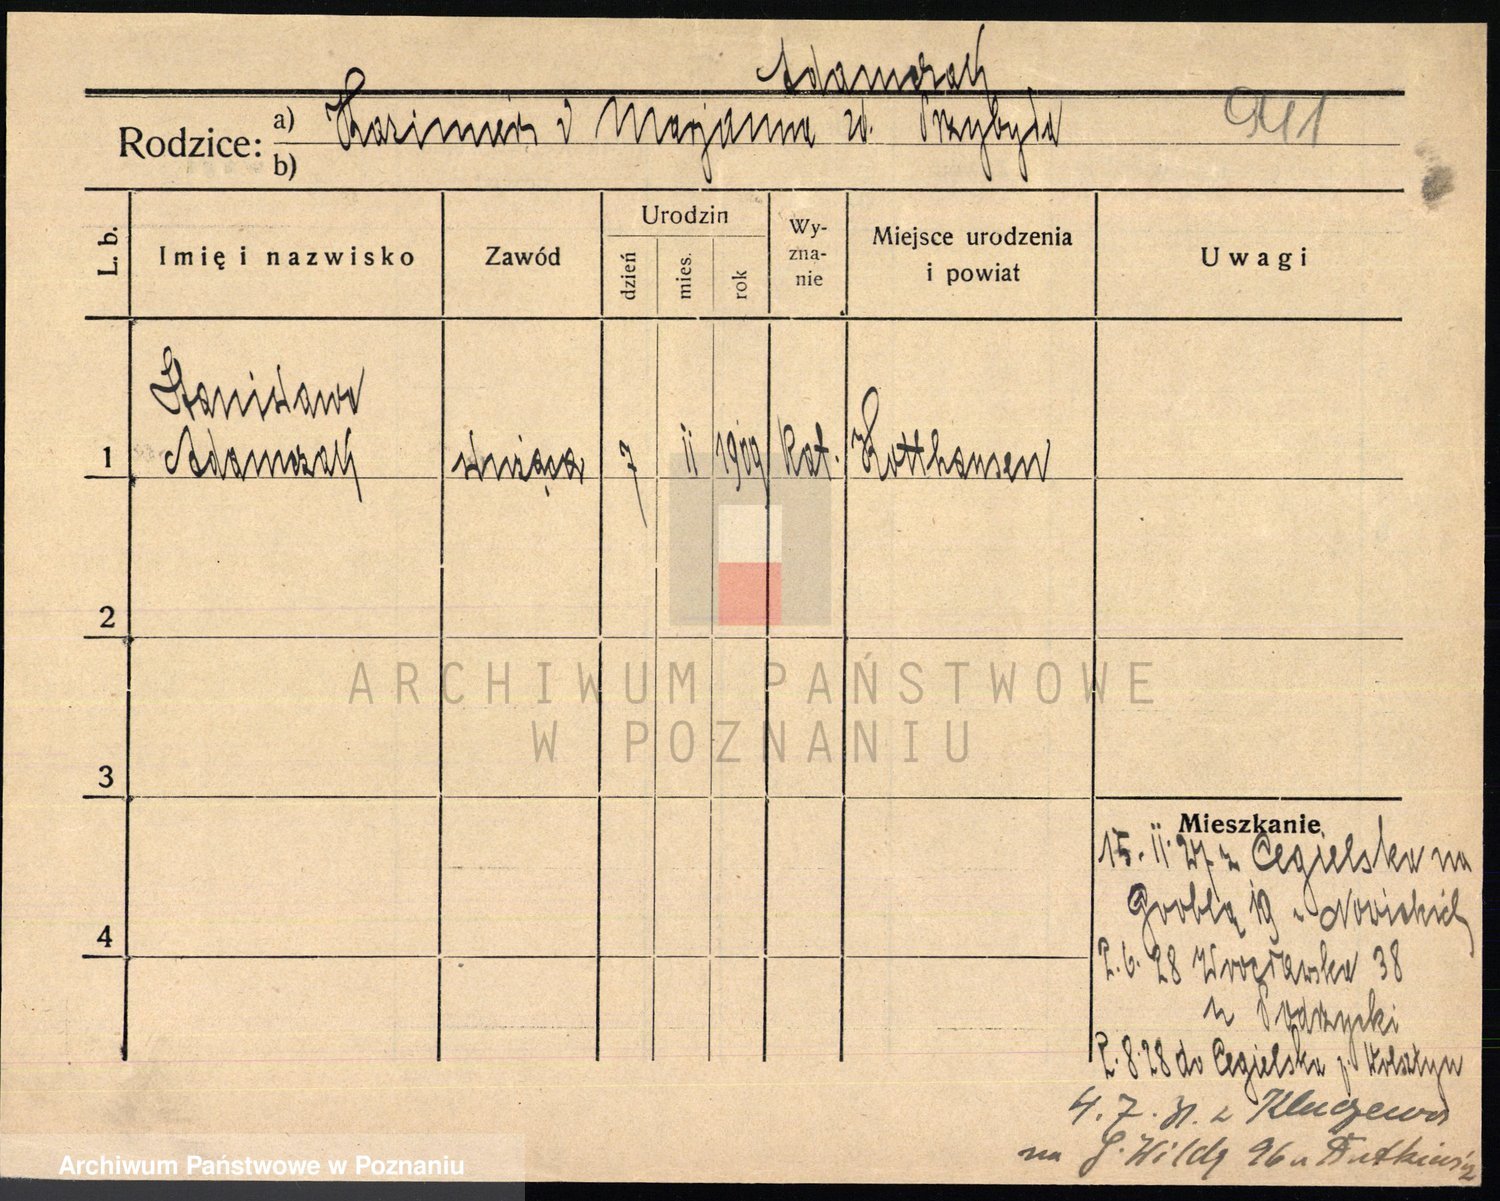 Adamczak
Rodzice: a) Kazimierz i Marjanna z d. Przybyła 941
b)
L. b. Imię i nazwisko Zawód Urodzin dzień mies. rok Wy-zna-nie Miejsce urodzenia i powiat Uwagi
Stanisława
1 Adamczak służąca 7 II 1909 kat. Kotthausen
2
3
4
Mieszkanie
15. II. 27 z Cegielska na
Groblą 19 u Nowickich
2. 6. 28 Wrocławska 38
u Podrzycki
2. 8. 28 do Cegielska p. Wolsztyn
4. 7. 31. z Kluczewa
na G. Wildę 96 u Rutkiewicz
ARCHIWUM PAŃSTWOWE
W POZNANIU
Archiwum Państwowe w Poznaniu